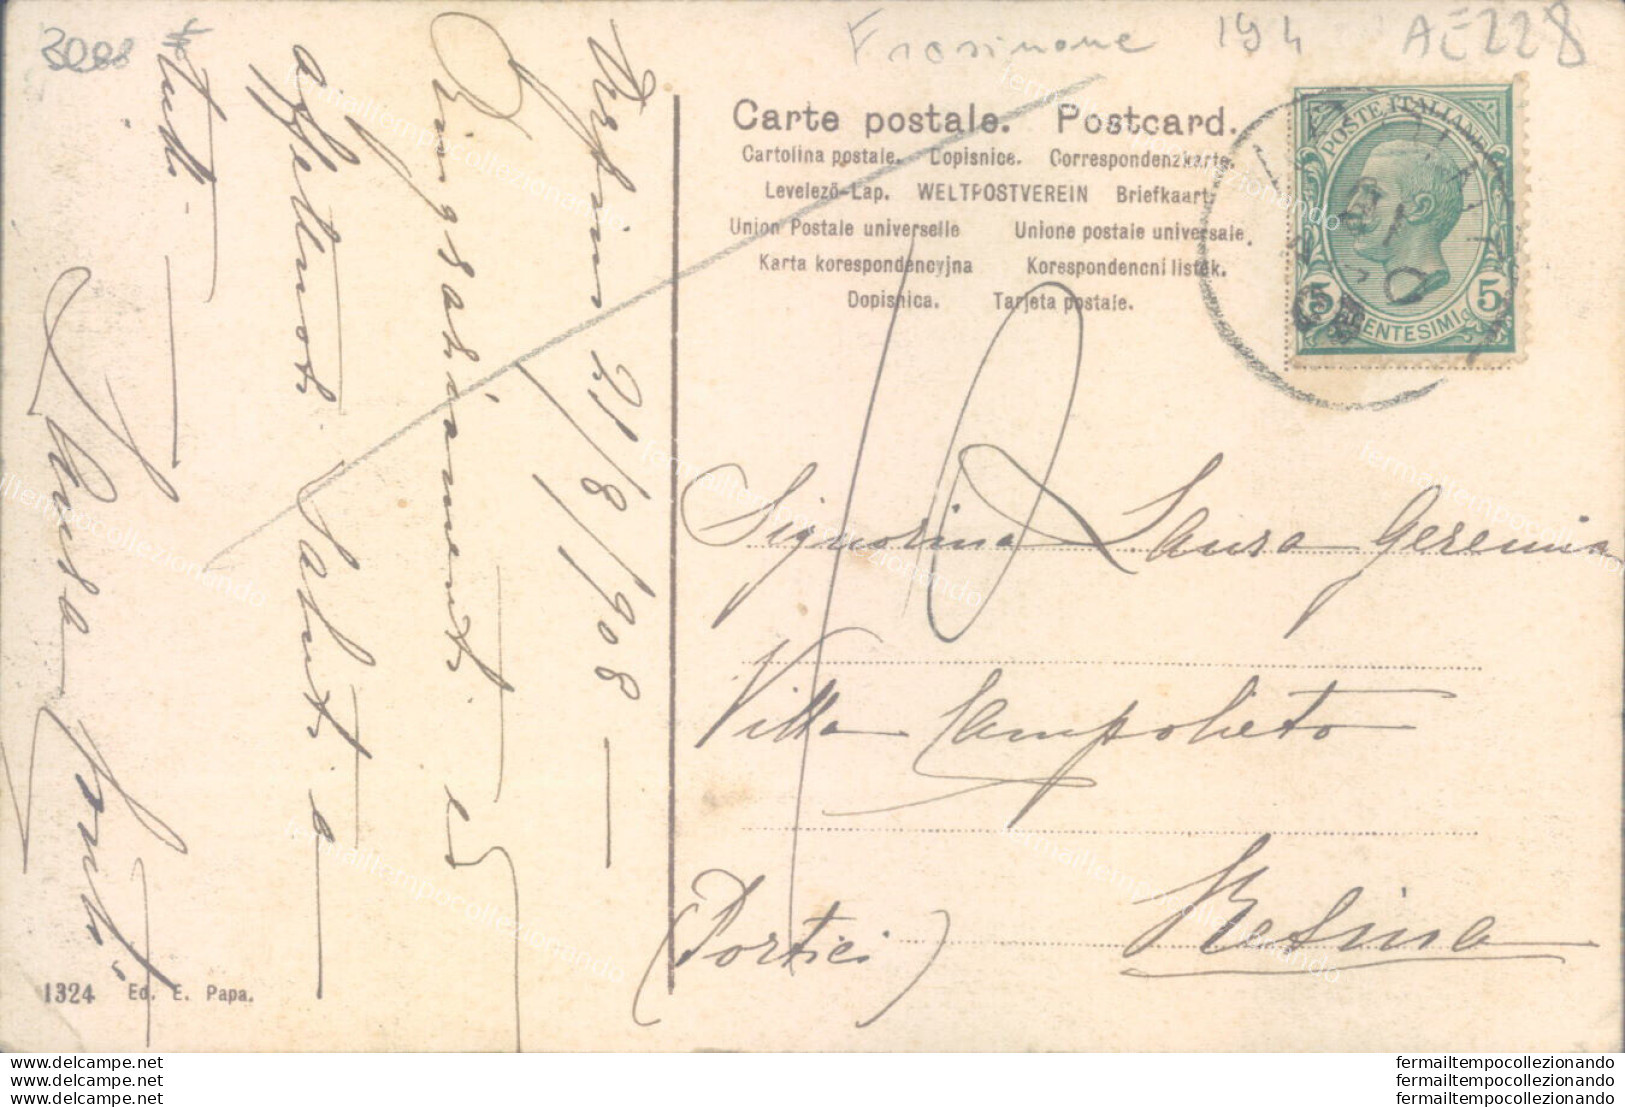 3088
Frosinone 194 AE228
Carte postale. Postcard.
Cartolina postale. Dopisnice. Correspondenzkarte.
Levelező-Lap. WELTPOSTVEREIN Briefkaart.
Union Postale universelle Unione postale universale.
Karta korespondencyjna Korespondencni listek.
Dopisnica. Tarjeta postale.
POSTE ITALIANE
5 CENTESIMI 5
21/8/1908
Ringraziamenti ed
affettuosi saluti a
tutti
Signorina Laura Geremia
Villa Campolieto
Resina
(Portici)
1324 Ed. E. Papa.
delcampe.net
delcampe.net
delcampe.net
fermailtempocollezionando
fermailtempocollezionando
fermailtempocollezionando